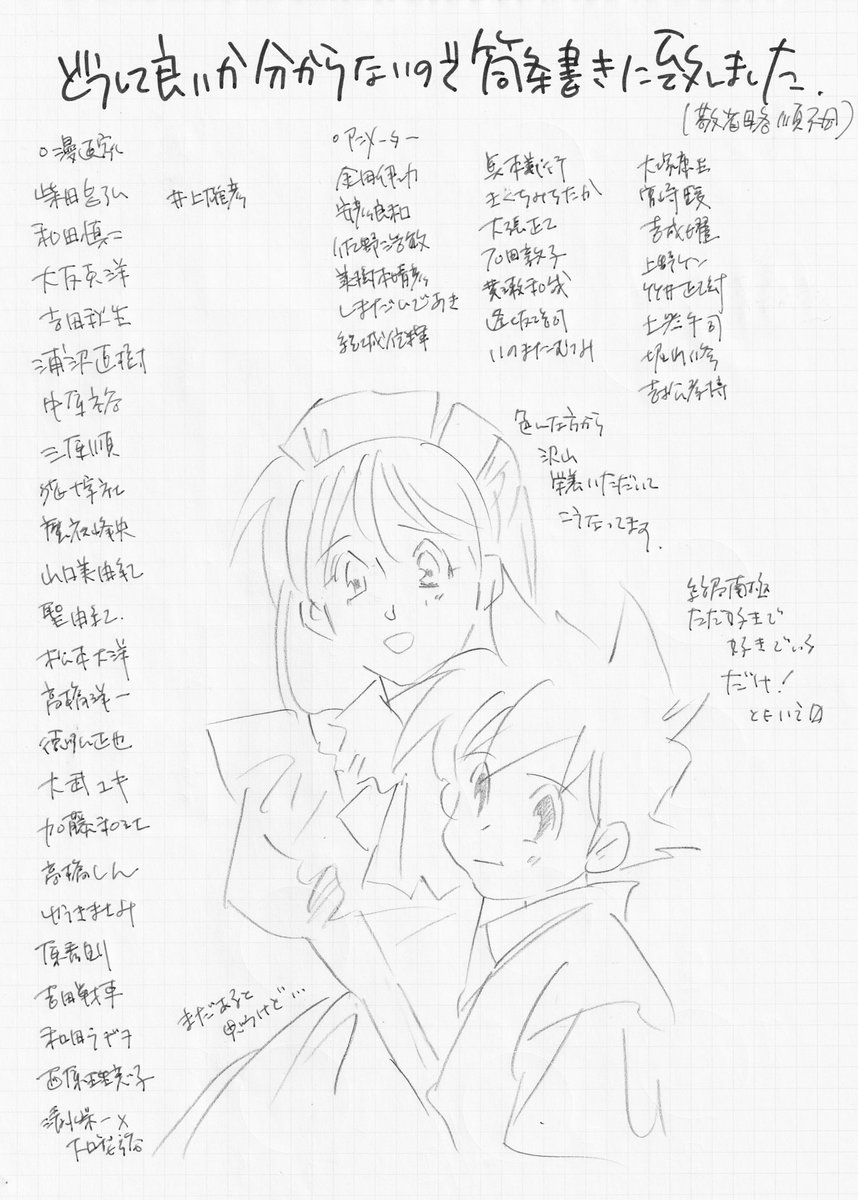 どうして良いか分からないので箇条書きに致しました.
(敬省略 順不同)
○漫画家
柴田昌弘
和田慎二
大友克洋
吉田秋生
浦沢直樹
中原裕
三原順
魔夜峰央
山口美由紀
聖由紀.
松本大洋
高橋洋一
徳弘正也
大武ユキ
加藤和恵
高橋しん
ゆうきまさみ
原秀則
吉田戦車
和田ラヂヲ
西原理恵子
井上雄彦
○アニメーター
金田伊功
安彦良和
佐野浩敏
美樹本晴彦
しまだひであき
結城信輝
貞本義行
さくちみちたか
大張正己
石田敦子
黄瀬和哉
逢坂浩司
いのまたむつみ
大塚康生
宮崎駿
吉成曜
上野ケン
竹井正樹
土器手司
堀内修
吉松孝博
色んな方から
沢山
栄養いただいて
こうなってます.
鈴木南極
ただ好きで
好きでいる
だけ!
という□
まだあると
思うけど…